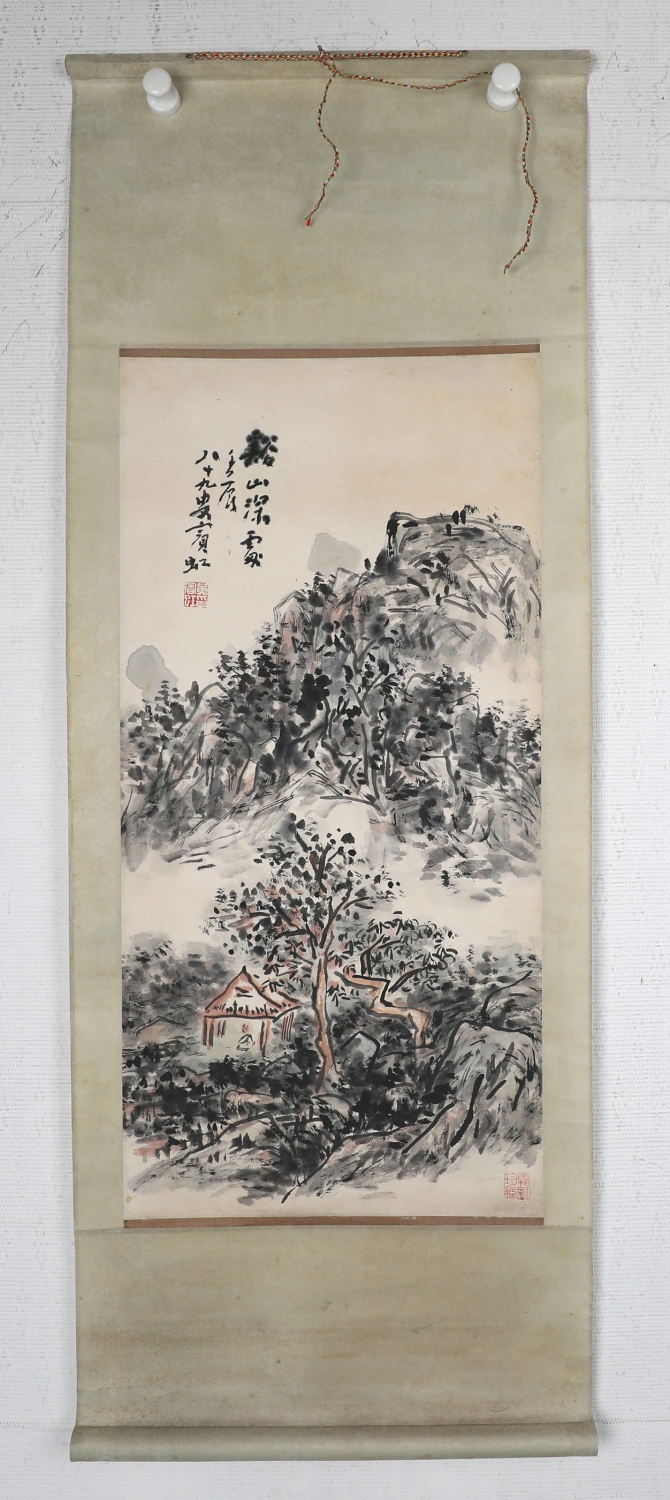 谿山深處
壬辰
八十九叟賓虹